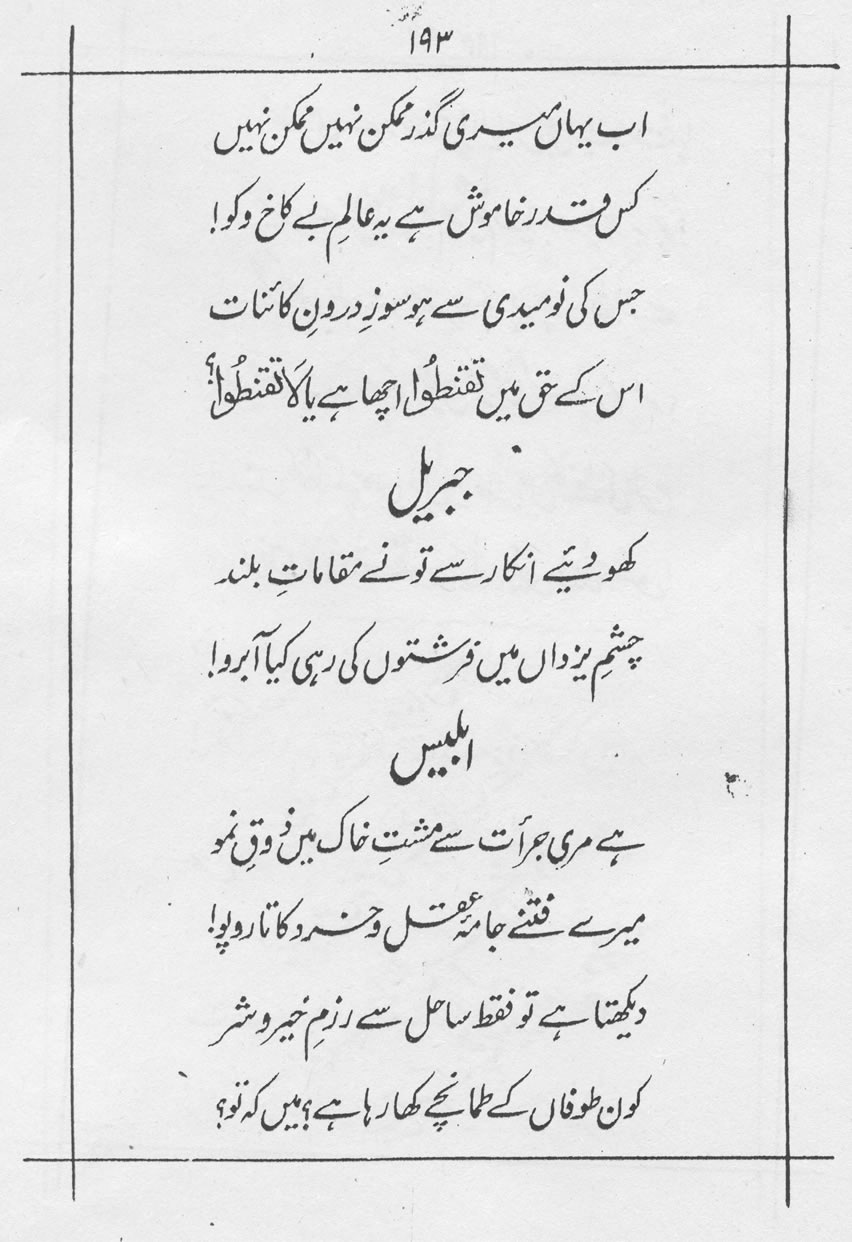 ۱۹۳
اب یہاں میری گذر ممکن نہیں ممکن نہیں
کس قدر خاموش ہے یہ عالمِ بے کاخ و کو!
جس کی نومیدی سے ہو سوزِ درونِ کائنات
اس کے حق میں تَقنَطُوا اچھا ہے یا لَا تَقنَطُوا؟
جبریل
کھو دئیے انکار سے تو نے مقاماتِ بلند
چشمِ یزداں میں فرشتوں کی رہی کیا آبرو!
ابلیس
ہے مری جرأت سے مشتِ خاک میں ذوقِ نمو
میرے فتنے جامۂ عقل و خرد کا تاروپو!
دیکھتا ہے تو فقط ساحل سے رزمِ خیر و شر
کون طوفاں کے طمانچے کھا رہا ہے؟ میں کہ تو؟